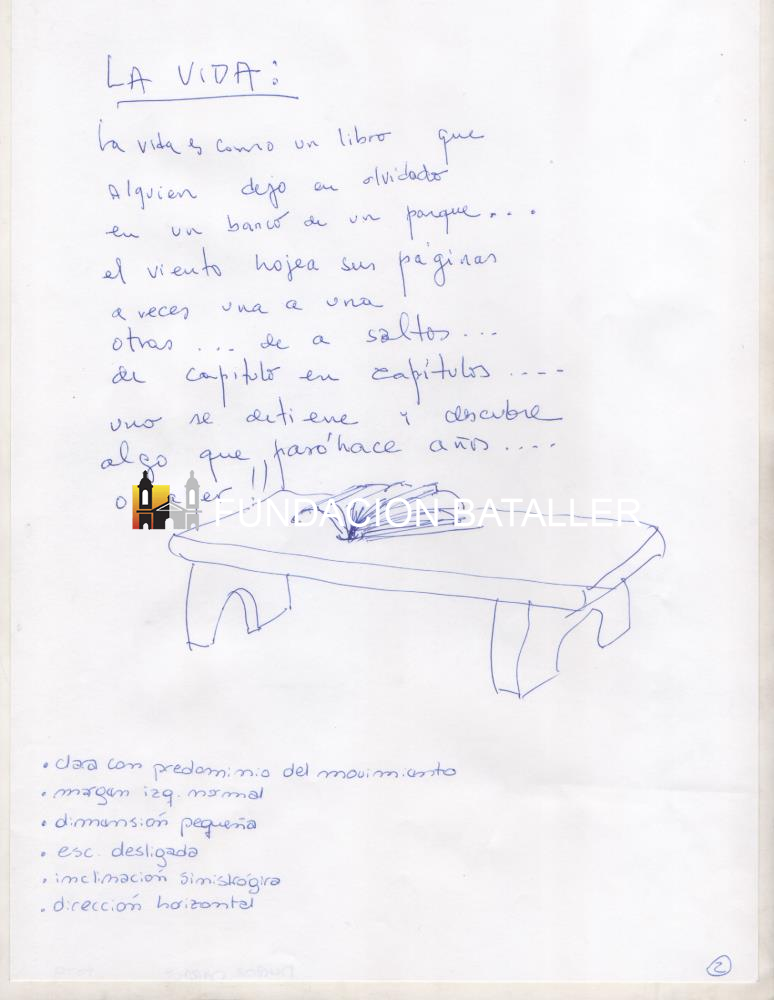 LA VIDA:
la vida es como un libro que
Alguien dejo en olvidado
en un banco de un parque....
el viento hojea sus páginas
a veces una a una
otras ... de a saltos...
de capitulo en capítulos ....
uno se detiene y descubre
algo que paso hace años....
o
FUNDACION BATALLER
• clara con predominio del movimiento
• margen izq. normal
• dimensión pequeña
• esc. desligada
• inclinación sinistrógira
• dirección horizontal
2